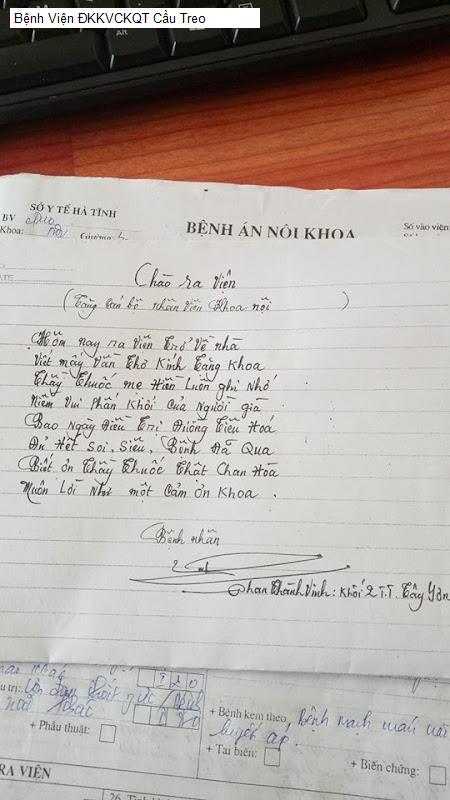 Bệnh Viện ĐKKVCKQT Cầu Treo
Alt
SỞ Y TẾ HÀ TĨNH
BV
Khoa: nội
BỆNH ÁN NỘI KHOA
Số vào viện:
Chào ra viện
(Tặng cán bộ nhân viên Khoa nội )
Hôm nay ra viên trở về nhà
Viết mấy vần thơ kính tặng khoa
Thầy thuốc mẹ hiền luôn ghi nhớ
Niềm vui phấn khởi của người già
Bao ngày điều trị đường tiêu hoá
Đủ hết soi, siêu, bệnh đã qua
Biết ơn thầy thuốc thật chan hòa
Muôn lời như một cảm ơn khoa.
Bệnh nhân
Phan Thành Vinh: Khối 2 T.T. Tây Sơn
1 2 0
+ Bệnh kèm theo
+ Phẫu thuật:
+ Tai biến:
+ Biến chứng:
RA VIÊN
26.